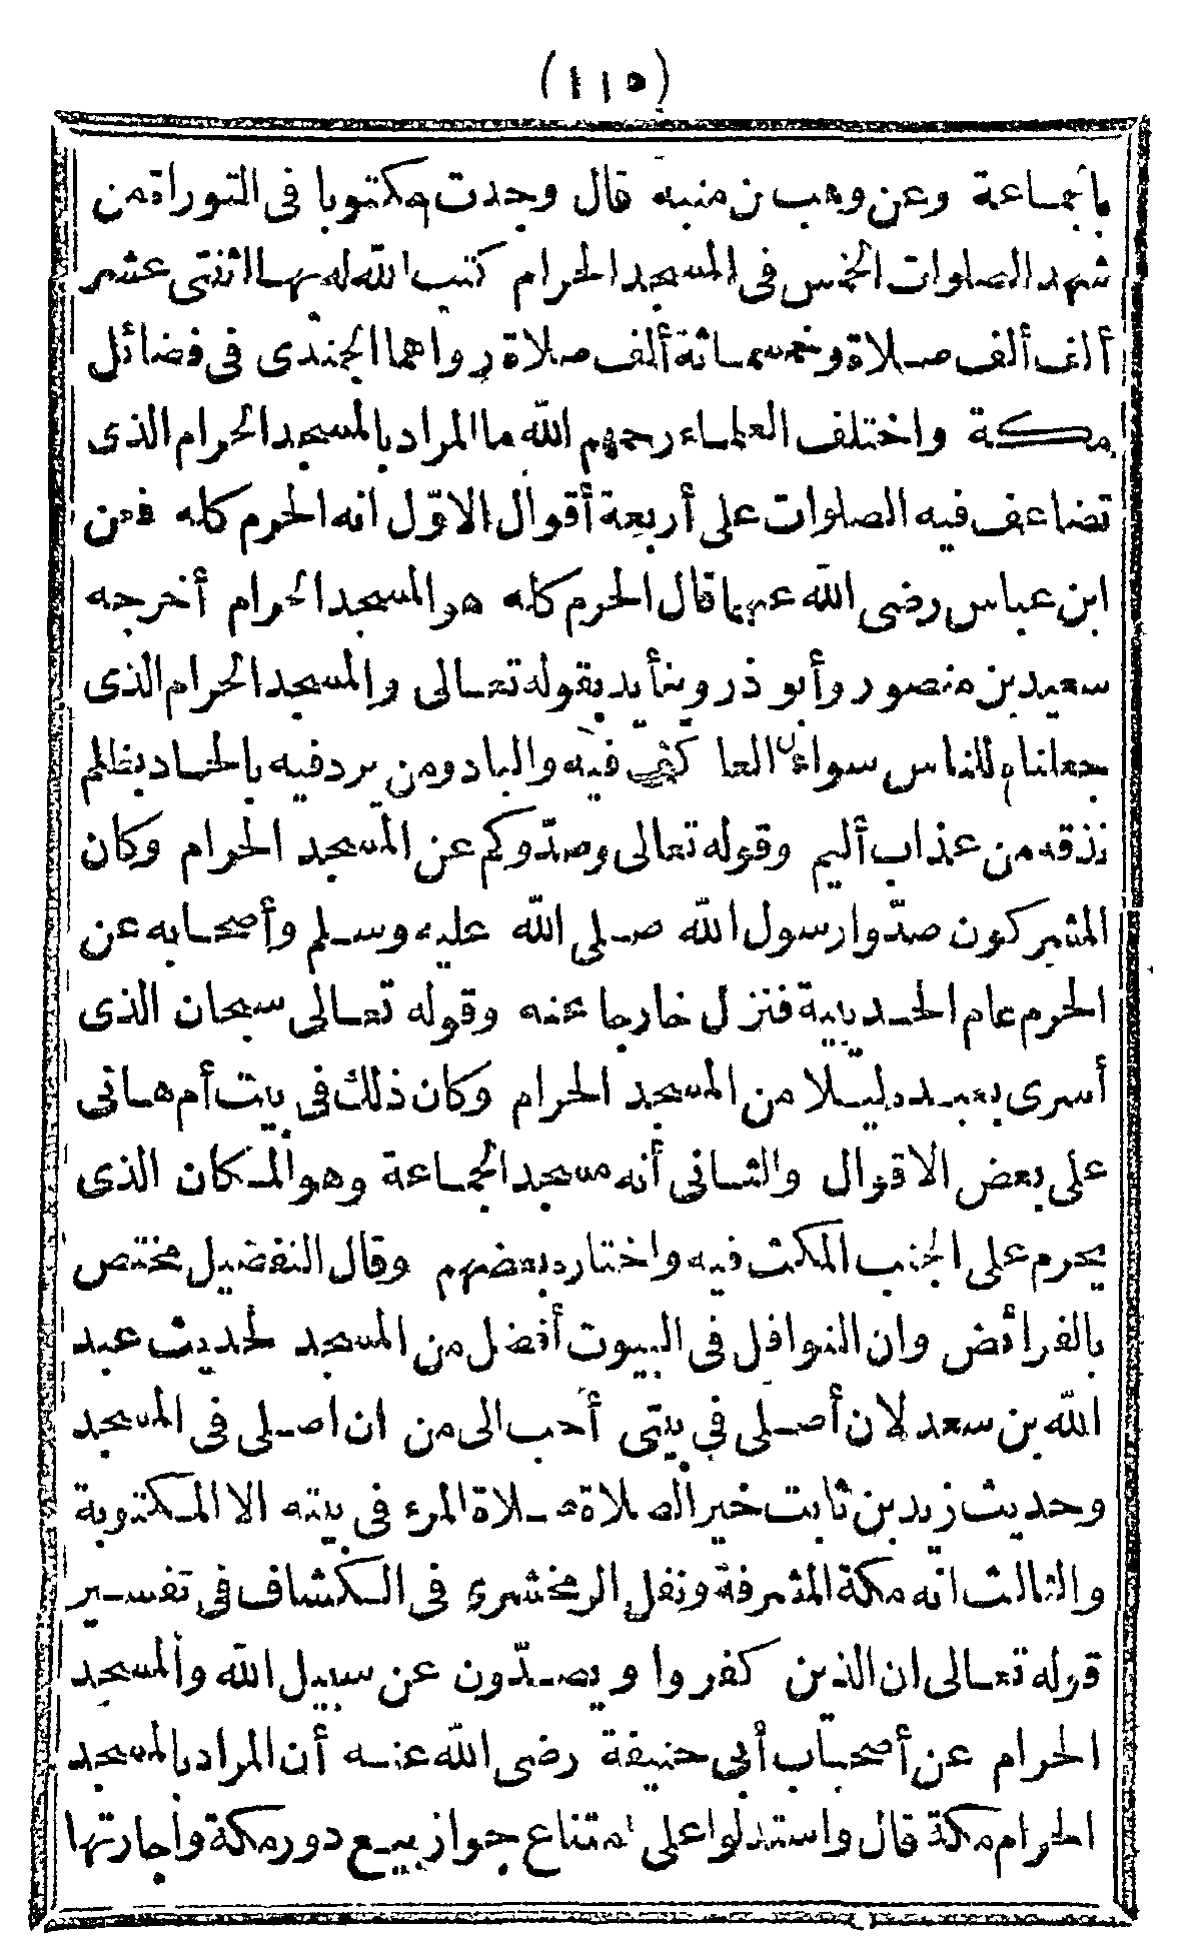 (١١٥)
بالجماعة وعن وهب بن منبه قال وجدت مكتوبا فى التوراة من
شهد الصلوات الخمس فى المسجد الحرام كتب الله له بها اثنتى عشر
ألف ألف صلاة وخمسمائة ألف صلاة رواهما الجندى فى فضائل
مكة واختلف العلماء رحمهم الله ما المراد بالمسجد الحرام الذى
تضاعف فيه الصلوات على أربعة أقوال الاوّل انه الحرم كله فعن
ابن عباس رضى الله عنهما قال الحرم كله هو المسجد الحرام أخرجه
سعيد بن منصور وأبو ذر ويتأيد بقوله تعالى والمسجد الحرام الذى
جعلناه للناس سواء العاكف فيه والباد ومن يرد فيه بالحاد بظلم
نذقه من عذاب أليم وقوله تعالى وصدّوكم عن المسجد الحرام وكان
المشركون صدّوا رسول الله صلى الله عليه وسلم وأصحابه عن
الحرم عام الحديبية فنزل خارجا عنه وقوله تعالى سبحان الذى
أسرى بعبده ليلا من المسجد الحرام وكان ذلك فى بيت أم هانى
على بعض الاقوال والثانى أنه مسجد الجماعة وهو المكان الذى
يحرم على الجنب المكث فيه واختاره بعضهم وقال التفضيل مختص
بالفرائض وان النوافل فى البيوت أفضل من المسجد لحديث عبد
الله بن سعد لان أصلى فى بيتى أحب الى من ان اصلى فى المسجد
وحديث زيد بن ثابت خير الصلاة صلاة المرء فى بيته الا المكتوبة
والثالث انه مكة المشرفة ونقل الزمخشرى فى الكشاف فى تفسير
قوله تعالى ان الذين كفروا ويصدّون عن سبيل الله والمسجد
الحرام عن أصحاب أبى حنيفة رضى الله عنه أن المراد بالمسجد
الحرام مكة قال واستدلوا على امتناع جواز بيع دور مكة واجارتها